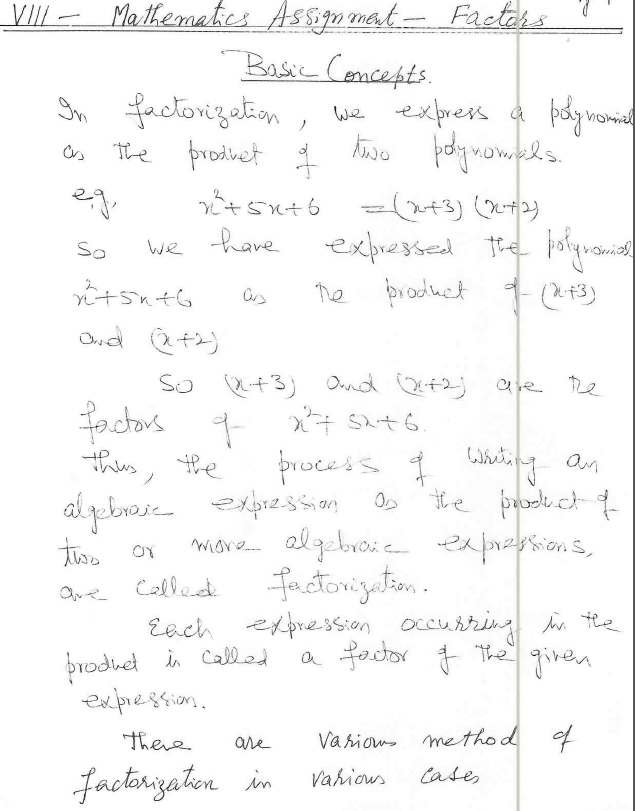 VIII - Mathematics Assignment - Factors
Basic Concepts.
In factorization, we express a polynomial
as the product of two polynomials.
e.g. x²+5x+6 =(x+3) (x+2)
So we have expressed the polynomial
x²+5x+6 as the product of (x+3)
and (x+2)
So (x+3) and (x+2) are the
factors of x²+5x+6.
Thus, the process of writing an
algebraic expression as the product of
two or more algebraic expressions,
are called factorization.
Each expression occurring in the
product is called a factor of the given
expression.
There are various method of
factorization in various cases